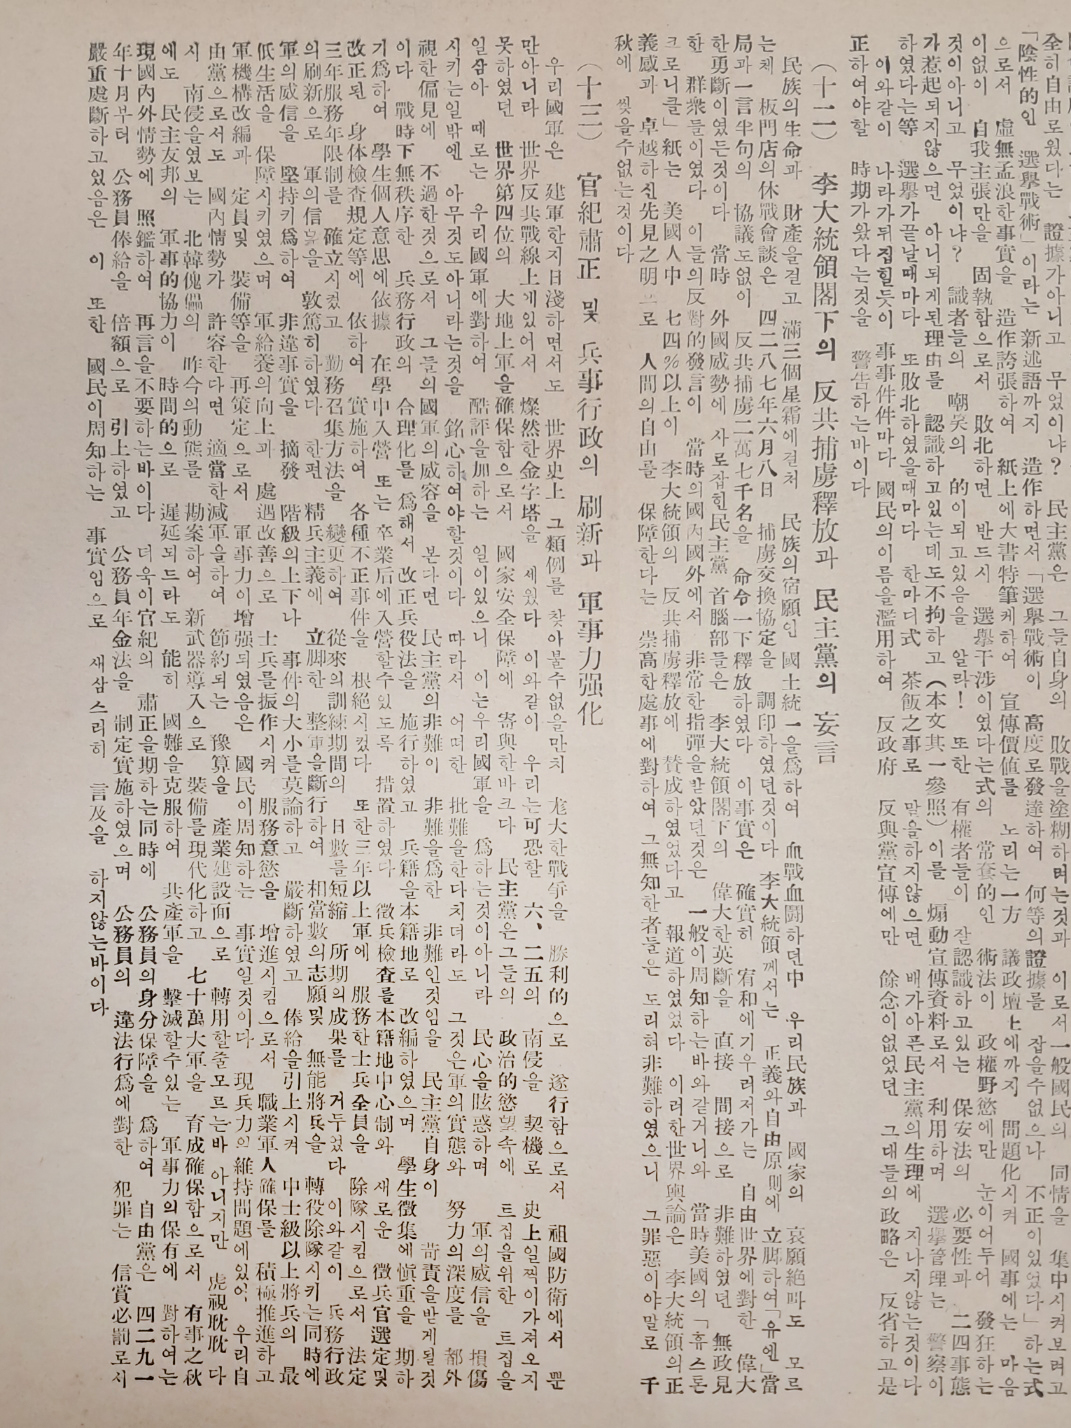 全히 自由로웠다는 證據가아니고 무엇이냐? 民主黨은 그들自身의 敗戰을塗糊하려는것과 이로서一般國民의 同情을 集中시켜보려고
「陰性的인 選擧戰術」이라는 新述語까지 造作하면서「選擧戰術이 高度로發達하여 何等의證據를 잡을수없으나 不正이있었다」하는式
으로서 虛無孟浪한事實을 造作誇張하여 紙上에大書特筆케하여 宣傳價値를 노리는一方 議政壇上에까지 問題化시켜 國事에는 마음
이없고 自我主張만을 固執함으로서 敗北하면 반드시 選擧干涉이였다는式의 常套的인 術法이 政權野慾에만 눈이어두어 發狂하는
것이아니고 무었이냐? 識者들의 嘲笑의 的이되고있음을 알라! 또한 有權者들이 잘認識하고있는 保安法의 必要性과 二四事態
가惹起되지않으면 아니되게된理由를 認識하고있는데도不拘하고(本文其一參照)이를 煽動宣傳資料로서 利用하며 選擧管理는 警察이
하였다는等 選擧가끝날때마다 또敗北하였을때마다 한마디式 茶飯之事로 말을하지않으면 배가아픈民主黨의生理에 지나지않는것이다
이와같이 나라가뒤집힐듯이 事事件件마다 國民의이름을濫用하여 反政府 反與黨宣傳에만 餘念이없었던 그대들의政略은 反省하고是
正하여야할 時期가왔다는것을 警告하는바이다
(十二) 李大統領閣下의 反共捕虜釋放과 民主黨의 妄言
民族의生命과 財產을걸고 滿三個星霜에걸처 民族의宿願인 國土統一을爲하여 血戰血鬪하던中 우리民族과 國家의 哀願絕叫도 모르
는체 板門店의休戰會談은 四二八七年六月八日 捕虜交換協定을 調印하였던것이다 李大統領께서는 正義와自由原則에 立脚하여「유엔」當
局과 一言半句의 協議도없이 反共捕虜二萬七千名을 命令一下釋放하였다 이事實은 確實히 宥和에기우러저가는 自由世界에對한 偉大
한勇斷이였든것이다 當時 外國威勢에 사로잡힌民主黨 首腦部들은 李大統領閣下의 偉大한英斷을 直接 間接으로 非難하였던 無政見
한 群衆들이였다 이들의反對的發言이 當時의國內國外에서 非常한指彈을받았던것은 一般이周知하는바와같거니와 當時美國의「휴스톤
크로니클」紙는 美國人中 七四%以上이 李大統領의 反共捕虜釋放에 賛成하였었다고 報道하였었다 이러한世界輿論은 李大統領의正
義感과 卓越하신先見之明으로 人間의自由를 保障한다는 崇高한處事에對하여 그無知한者들은 도리혀非難하였으니 그罪惡이야말로 千
秋에 씻을수없는것이다
(十三) 官紀肅正 및 兵事行政의 刷新과 軍事力强化
우리國軍은 建軍한지日淺하면서도 世界史上 그類例를 찾아볼수없을만치 尨大한戰爭을 勝利的으로 遂行함으로서 祖國防衛에서 뿐
만아니라 世界反共戰線上에있어서 燦然한金字塔을 세웠다 이와같이 우리는可恐할 六、二五의 南侵을 契機로 史上일찍이가져오지
못하였던 世界第四位의 大地上軍을確保함으로서 國家安全保障에 寄與한바크다 民主黨은그들의 政治的慾望속에 트집을위한 트집을
일삼아 때로는 우리國軍에對하여 酷評을加하는 일이있으니 이는우리國軍을 爲하는것이아니라 民心을眩惑하며 軍의威信을 損傷
시키는일밖엔 아무것도아니라는것을 銘心하여야할것이다 따라서 어떠한 批難을한다치더라도 그것은軍의實態와 努力의深度를 都外
視한偏見에 不過한것으로서 그들의國軍의威容을 본다면 民主黨의非難이 非難을爲한 非難인것임을 民主黨自身이 苛責을받게될것
이다 戰時下無秩序한 兵務行政의 合理化를 爲해서 改正兵役法을 施行하였고 兵籍을本籍地로 改編하였으며 學生徵集에愼重을 期하
기爲하여 學生個人意思에依據 在學中入營 또는 卒業后에入營할수있도록 措置하였다 徵兵檢查를本籍地中心制와 새로운 徵兵官選定및
改正된 身体檢查規定等에 依하여 實施하여 各種不正事件을 根絕시켰다 또한三年以上軍에 服務한士兵全員을 除隊시킴으로서 法定
三年服務年限制를 確立시켰고 勤務召集方法을 變更하여 從來의訓練期間의 日數를短縮 所期의成果를 거두었다 이와같이 兵務行政
의刷新으로 軍의信望을 敦篤히하였다 한편 精兵主義에 立脚한 整軍을斷行하여 相當數의志願및 無能將兵을 轉役除隊시키는同時에
軍의威信을 堅持키爲하여 非違事實을 摘發 階級의上下나 事件의大小를莫論하고 嚴斷하였고 俸給을引上시켜 中士級以上將兵의 最
低生活을 保障시키였으며 軍給養의向上과 處遇改善으로 士兵를振作시켜 服務意慾을 增進시킴으로서 職業軍人確保를 積極推進하고
軍機構改編과 定員및 裝備等을 再策定으로서 軍事力이增强되였음은 國民이周知하는 事實일것이다 現兵力의維持問題에있어 우리自
由黨으로서도 國內情勢가 許容한다면 適當한減軍을하여 節約되는 豫算을 產業建設面으로 轉用할줄모르는바 아니지만 虎視耽耽 다
시 南侵을엿보는 北韓傀儡의 昨今의動態를 勘案하여 新武器導入으로 裝備를現代化하고 七十萬大軍을 育成確保함으로서 有事之秋
에도 民主友邦의 軍事的協力이 時間的으로 遲延되드라도 能히 國難을克服하여 共產軍을 擊滅할수있는 軍事力의保有에 對하여는
現國內外情勢에 照鑑하여 再言을不要하는바이다 더욱이官紀의 肅正을期하는同時에 公務員의身分保障을 爲하여 自由黨은 四二九一
年十月부터 公務員俸給을 倍額으로 引上하였고 公務員年金法을 制定實施하였으며 公務員의 違法行爲에對한 犯罪는 信賞必罰로서
嚴重處斷하고있음은 이 또한 國民이周知하는 事實임으로 새삼스러히 言及을 하지않는바이다